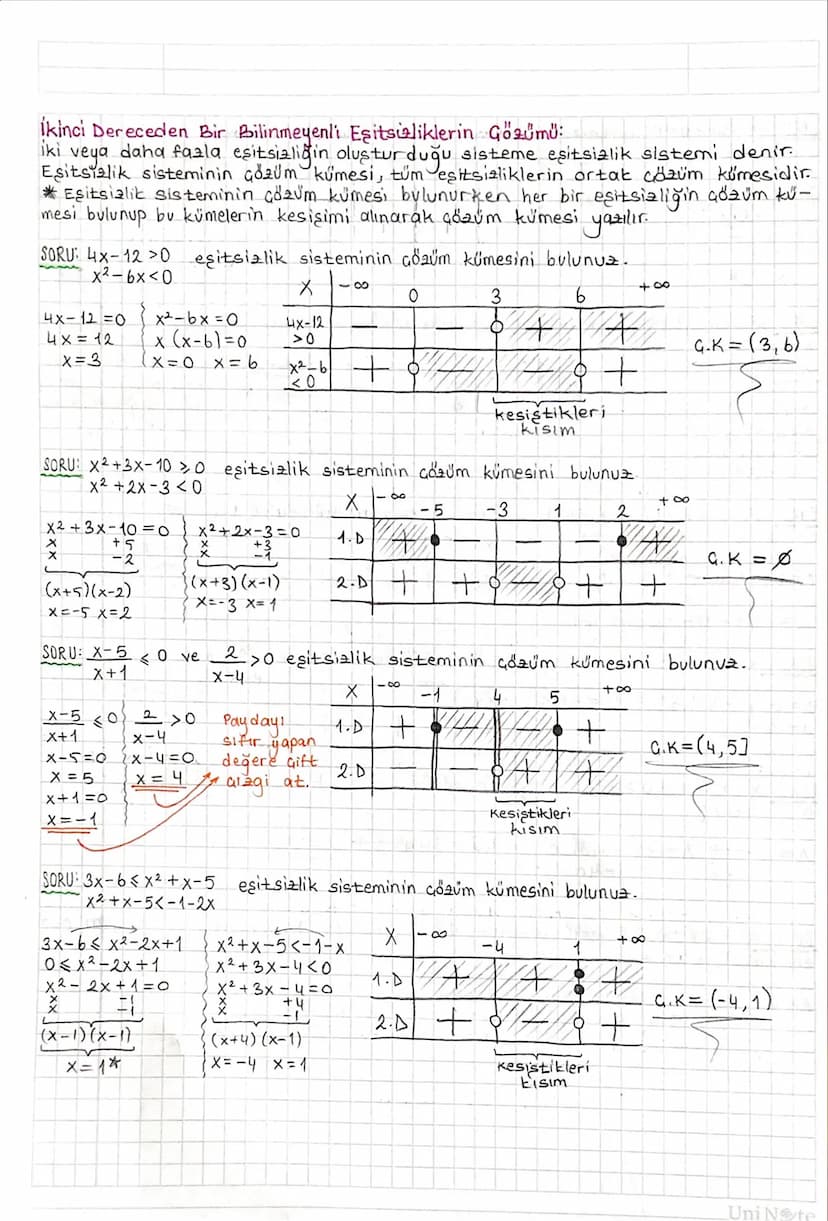 İkinci Dereceden Bir Bilinmeyenli Eşitsizliklerin Çözümü:
İki veya daha fazla eşitsizliğin oluşturduğu sisteme eşitsizlik sistemi denir.
Eşitsizlik sisteminin çözüm kümesi, tüm eşitsizliklerin ortak çözüm kümesidir.
* Eşitsizlik sisteminin çözüm kümesi bulunurken her bir eşitsizliğin çözüm kü-
mesi bulunup bu kümelerin kesişimi alınarak çözüm kümesi yazılır.
SORU: 4x-12>0 eşitsizlik sisteminin çözüm kümesini bulunuz.
x²-6x<0
x -∞ 0 3 6 +∞
4x-12=0 x²-6x=0
4x=12 x(x-6)=0
x=3 x=0 x=6
4x-12 >0 - - + +
x²-6 <0 + - - +
Ç.K=(3,6)
kesiştikleri
kısım
SORU: x²+3x-10⩾0 eşitsizlik sisteminin çözüm kümesini bulunuz
x²+2x-3<0
x -∞ -5 -3 1 2 +∞
x²+3x-10=0 x²+2x-3=0
x +5 x +3
x -2 x -1
(x+5)(x-2) (x+3)(x-1)
x=-5 x=2 x=-3 x=1
1.D + - - - +
2.D + + - + +
Ç.K=∅
SORU: x-5/x+1 ⩽0 ve 2/x-4 >0 eşitsizlik sisteminin çözüm kümesini bulunuz.
x -∞ -1 4 5 +∞
x-5/x+1 ⩽0 2/x-4 >0
x-5=0 x-4=0
x=5 x=4
x+1=0
x=-1
Paydayı
sıfır yapan
değere çift
çizgi at.
1.D + - - +
2.D - - + +
Ç.K=(4,5]
kesiştikleri
kısım
SORU: 3x-6⩽x²+x-5 eşitsizlik sisteminin çözüm kümesini bulunuz.
x²+x-5<-1-2x
x -∞ -4 1 +∞
3x-6⩽x²-2x+1 x²+x-5<-1-x
0⩽x²-2x+1 x²+3x-4<0
x²-2x+1=0 x²+3x-4=0
x -1 x +4
x -1 x -1
(x-1)(x-1) (x+4)(x-1)
x=1* x=-4 x=1
1.D + + +
2.D + - +
Ç.K=(-4,1)
kesiştikleri
kısım
Uni Note